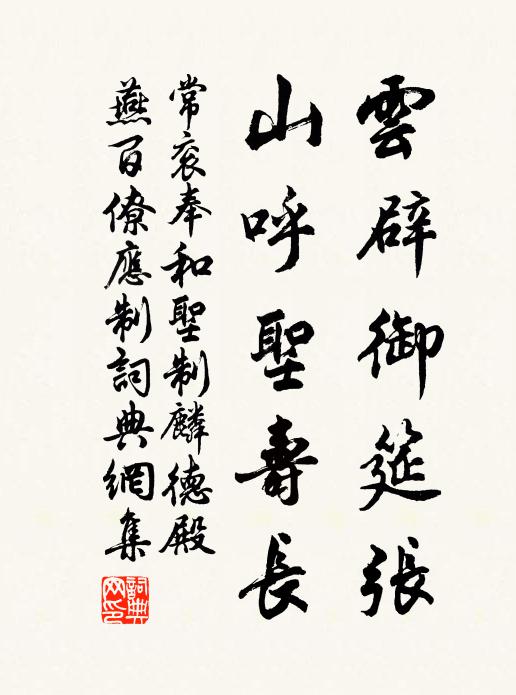 雲辟御筵張
山呼聖壽長
常袞奉和聖制麟德殿
燕百僚應制詞典網集
詞典
网印